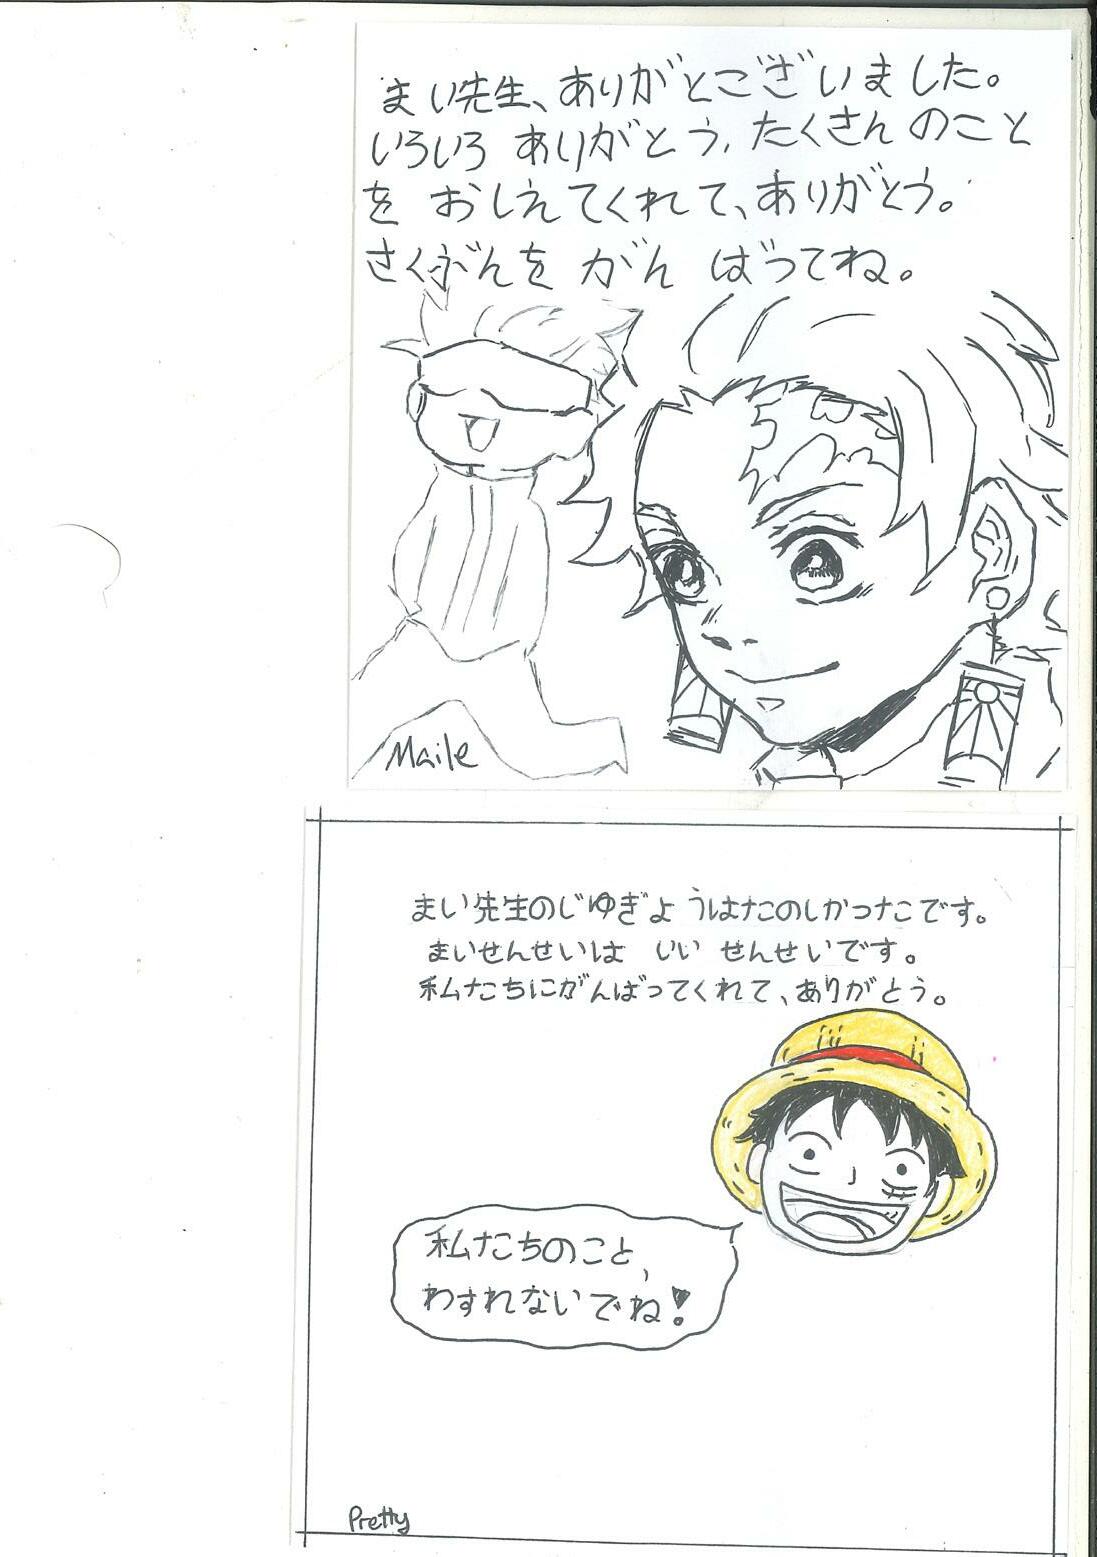 まい先生、ありがとございました。
いろいろ ありがとう、たくさんのこと
を おしえてくれて、ありがとう。
さくぶんを がん ばってね。
Maile
まい先生のじゆぎよ うはたのしかったこです。
まいせんせいは いい せんせいです。
私たちにがんばってくれて、ありがとう。
私たちのこと、
わすれないでね!
Pretty